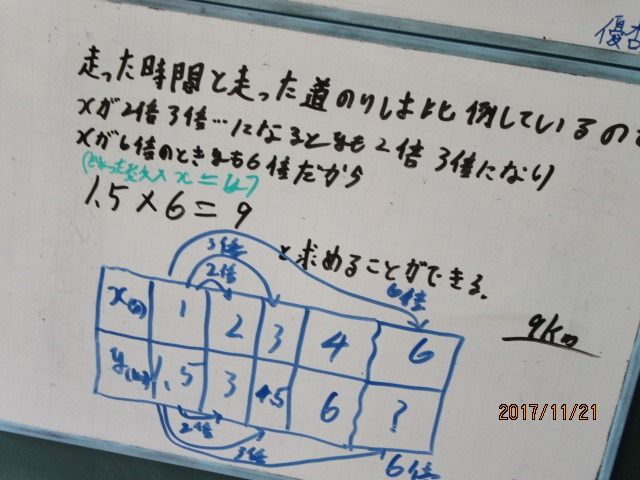 優
走った時間と走った道のりは比例しているので
xが2倍3倍…になるとyも2倍3倍になり
xが6倍のときyも6倍だから
1.5×6=9
と求めることができる.
9km
3倍
2倍
6倍
x(分) 1 2 3 4 6
y(km) 1.5 3 4.5 6 ?
2倍
3倍
6倍
2017/11/21